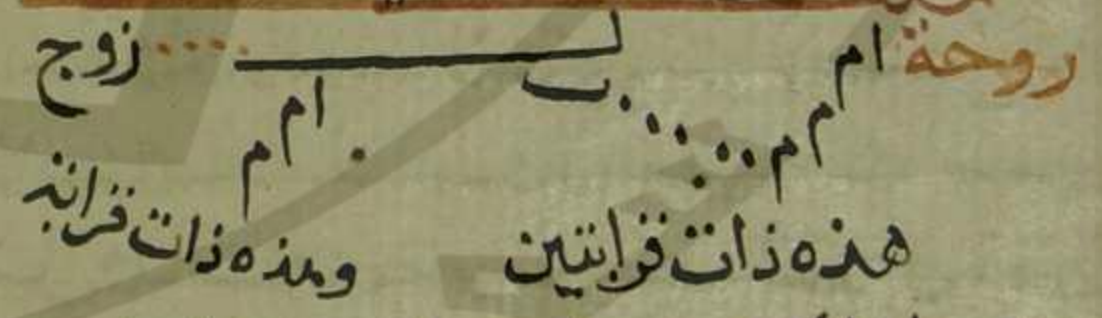 روحة ام ب زوج
ام ام
ام ام
هذه ذات قرابتين وهذه ذات قرابة